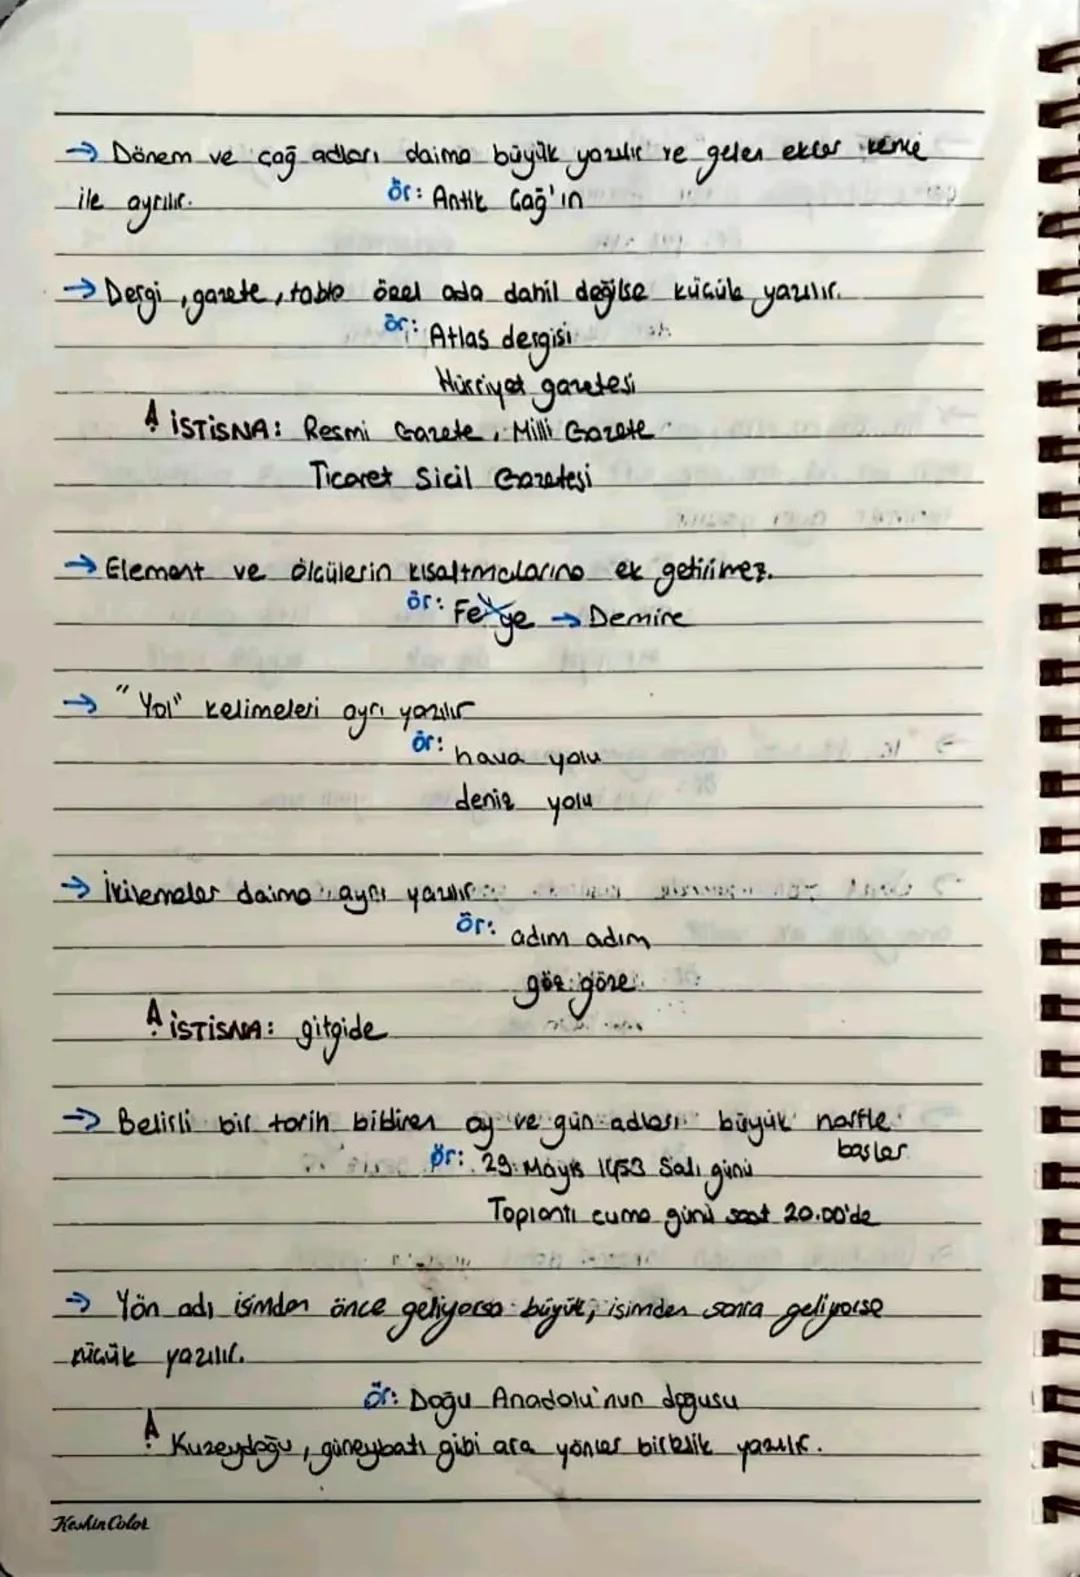 → Dönem ve çağ adları daima büyük yazılır ve gelen ekler kesme
ile ayrılır. ör: Antik Çağ'ın
→ Dergi, gazete, tablo özel ada dahil değilse küçük yazılır.
ör: Atlas dergisi
Hürriyet gazetesi
İSTİSNA: Resmi Gazete, Milli Gazete
Ticaret Sicil Gazetesi
→ Element ve ölçülerin kısaltmalarına ek getirilmez.
ör: Fe'ye → Demire
→ "Yol" kelimeleri ayrı yazılır
ör: hava yolu
deniz yolu
→ İkilemeler daima ayrı yazılır
ör: adım adım
göz göze
İSTİSNA: gitgide
→ Belirli bir tarih bildiren ay ve gün adları büyük harfle
başlar
ör: 29 Mayıs 1453 Salı günü
Toplantı cuma günü saat 20.00'de
→ Yön adı isimden önce geliyorsa büyük, isimden sonra geliyorsa
küçük yazılır.
ör: Doğu Anadolu'nun doğusu
Kuzeydoğu, güneybatı gibi ara yönler birleşik yazılır.
KeskinColor